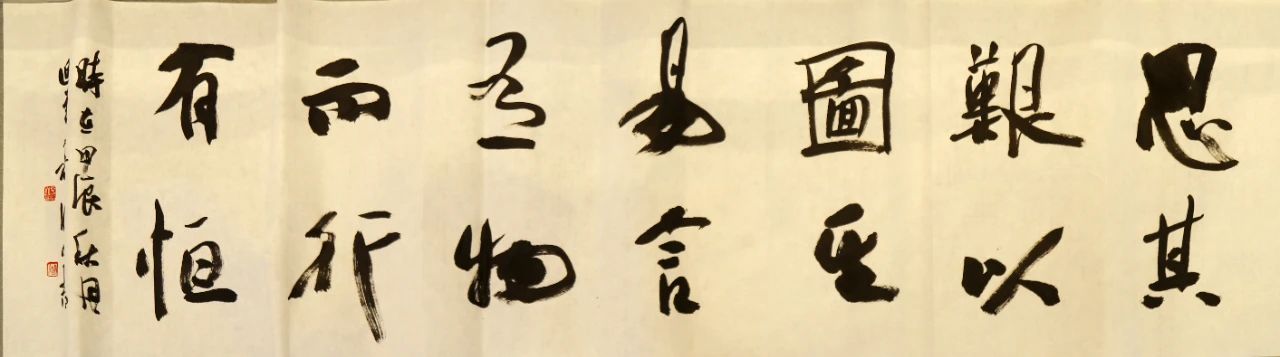 思其
艱以
圖其
易言
有物
而行
有恒
時在甲辰秋月